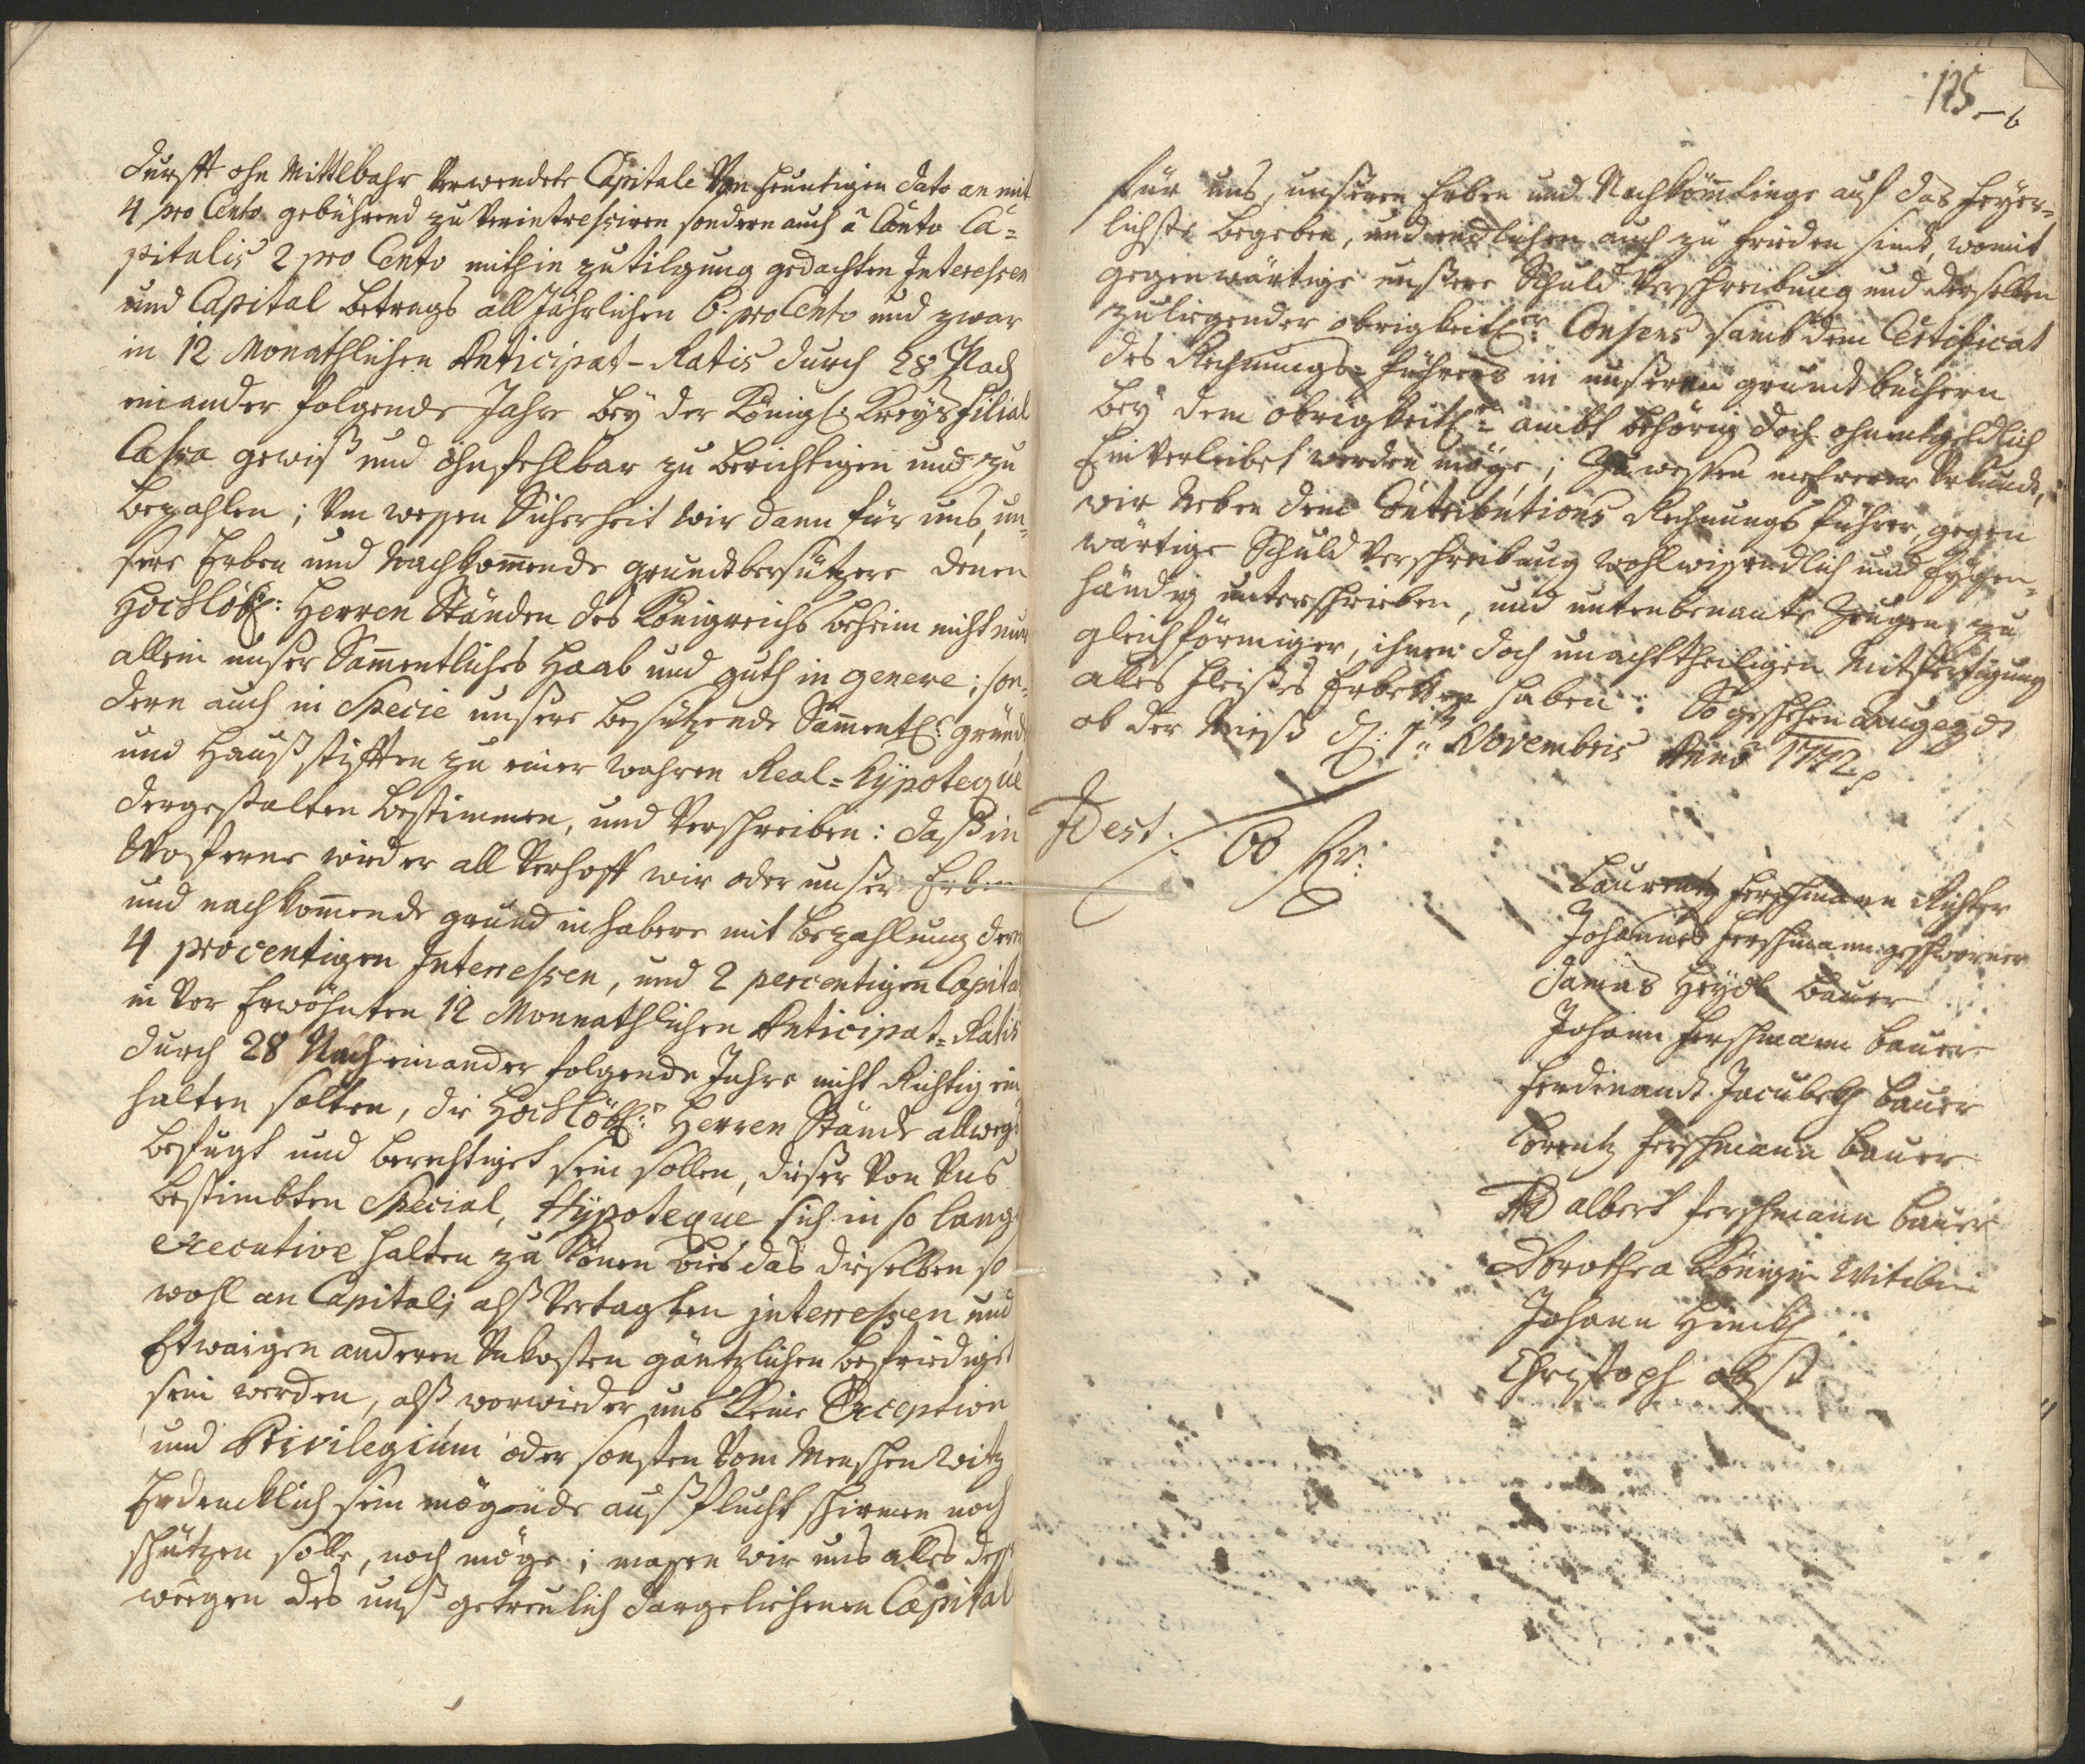 durfft ohn Mittlbahr verwendete Capitale von heuntigen dato an mit
4 pro Cento gebührend zu verintressiren sondern auch à Conto Ca=
pitalis 2 pro Cento mithin zu tilgung gedachten Interessen
und Capital betrags all Jährlichen 6. pro Cento und zwar
in 12 Monathlichen Anticipat-Ratis durch 28 Nach
einander folgende Jahre beÿ der Königl: Kreÿs filial
Cassa gewiß und ohnfehlbar zu berichtigen und zu
bezahlen; Um wessen Sicherheit wir dann für uns, un=
sere Erben und nachkommende grundtbesützere denen
Hochlöbl: Herren Ständen des Königreichs Beheim nicht nur
allein unser Sammentliches Haab und guth in genere; son=
dern auch in Specie unsere besützende Sammentl: gründ
und Haußstifften zu einer wahren Real=Hÿpoteque
dergestalten bestimmen, und verschreiben: daß in
Wofferne wieder all verhoff wir oder unser Erben
und nachkommende grund inhabere mit bezahlung deren
4 procentigen Interressen, und 2 percentigen Capital
in vor Erwöhnten 12 Monnathlichen Anticipat=Ratis
durch 28 Nach einander folgende Jahre nicht Richtig ein
halten solten, die Hochlöbl: Herren Stände allwegs
befugt und berechtiget sein sollen, dieser von Uns
bestimbten Special, Hÿpoteque sich in so lang
executive halten zu können bies das dieselben so
wohl an Capitali alß vertagten interressen und
Etwaigen anderen Unkosten gäntzlichen befriediget
sein werden, alß worwieder uns keine Exception
und Privilegium oder sonsten vom Menschen Witz
Erdencklich sein mögende außflucht schirmen noch
schützen solle, noch möge; massen wir uns alles dess
weegen des unß getreulich dargeliehenen Capital
125
für uns, unseren Erben und Nachkömmlinge auf das feÿer=
lichste begeben, und endlichen auch zu frieden sind, womit
gegenwärtige unßere Schuld Verschreibung und derselben
zuliegender obrigkeitl: Consens samb dem Certificat
des Rechnungs=führers in unßeren grundtbüchern
beÿ dem obrigkeitl: ambt behörig doch ohnentgeldlich
Einverleibet werden möge; Zu wessen mehrerer Urkund,
wir Neben dem Contributions Rechnungs führer, gegen
wärtige Schuld Verschreibung wohlwissendlich und Eÿgen=
händig unterschrieben, und untenbenante Zeugen zu
gleichförmiger, ihnen doch unachttheiligen Mitfertigung
alles fleißes Erbetten haben: So geschehen Langegg
ob der Mieß d: 1: Novembris Anno 1772
Id est.
Laurentz Herschmann Richter
Johannes Herschmann geschworner
Damas Heÿdl bauer
Johann Herschmann bauer
Ferdinandt Jacubeth bauer
Lorentz Herschmann bauer
Adalbert Herschmann bauer
Dorothea Königin Witibin
Johann
Christoph